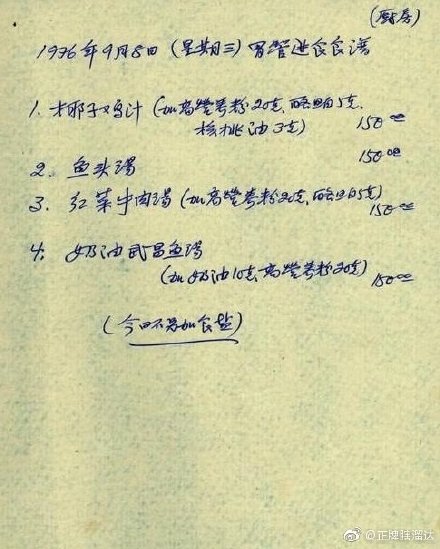 (厨房)
1976年9月8日(星期三)胃管进食食谱
1. 椰子鸡汁(加高营养粉20克,酪朊5克,
核桃油3克) 150cc
2. 鱼头汤 150cc
3. 红菜牛肉汤(加高营养粉20克,酪朊5克) 150cc
4. 奶油武昌鱼汤
(加奶油10克,高营养粉20克) 150cc
(今日不另加食盐)
@正牌猴溜达